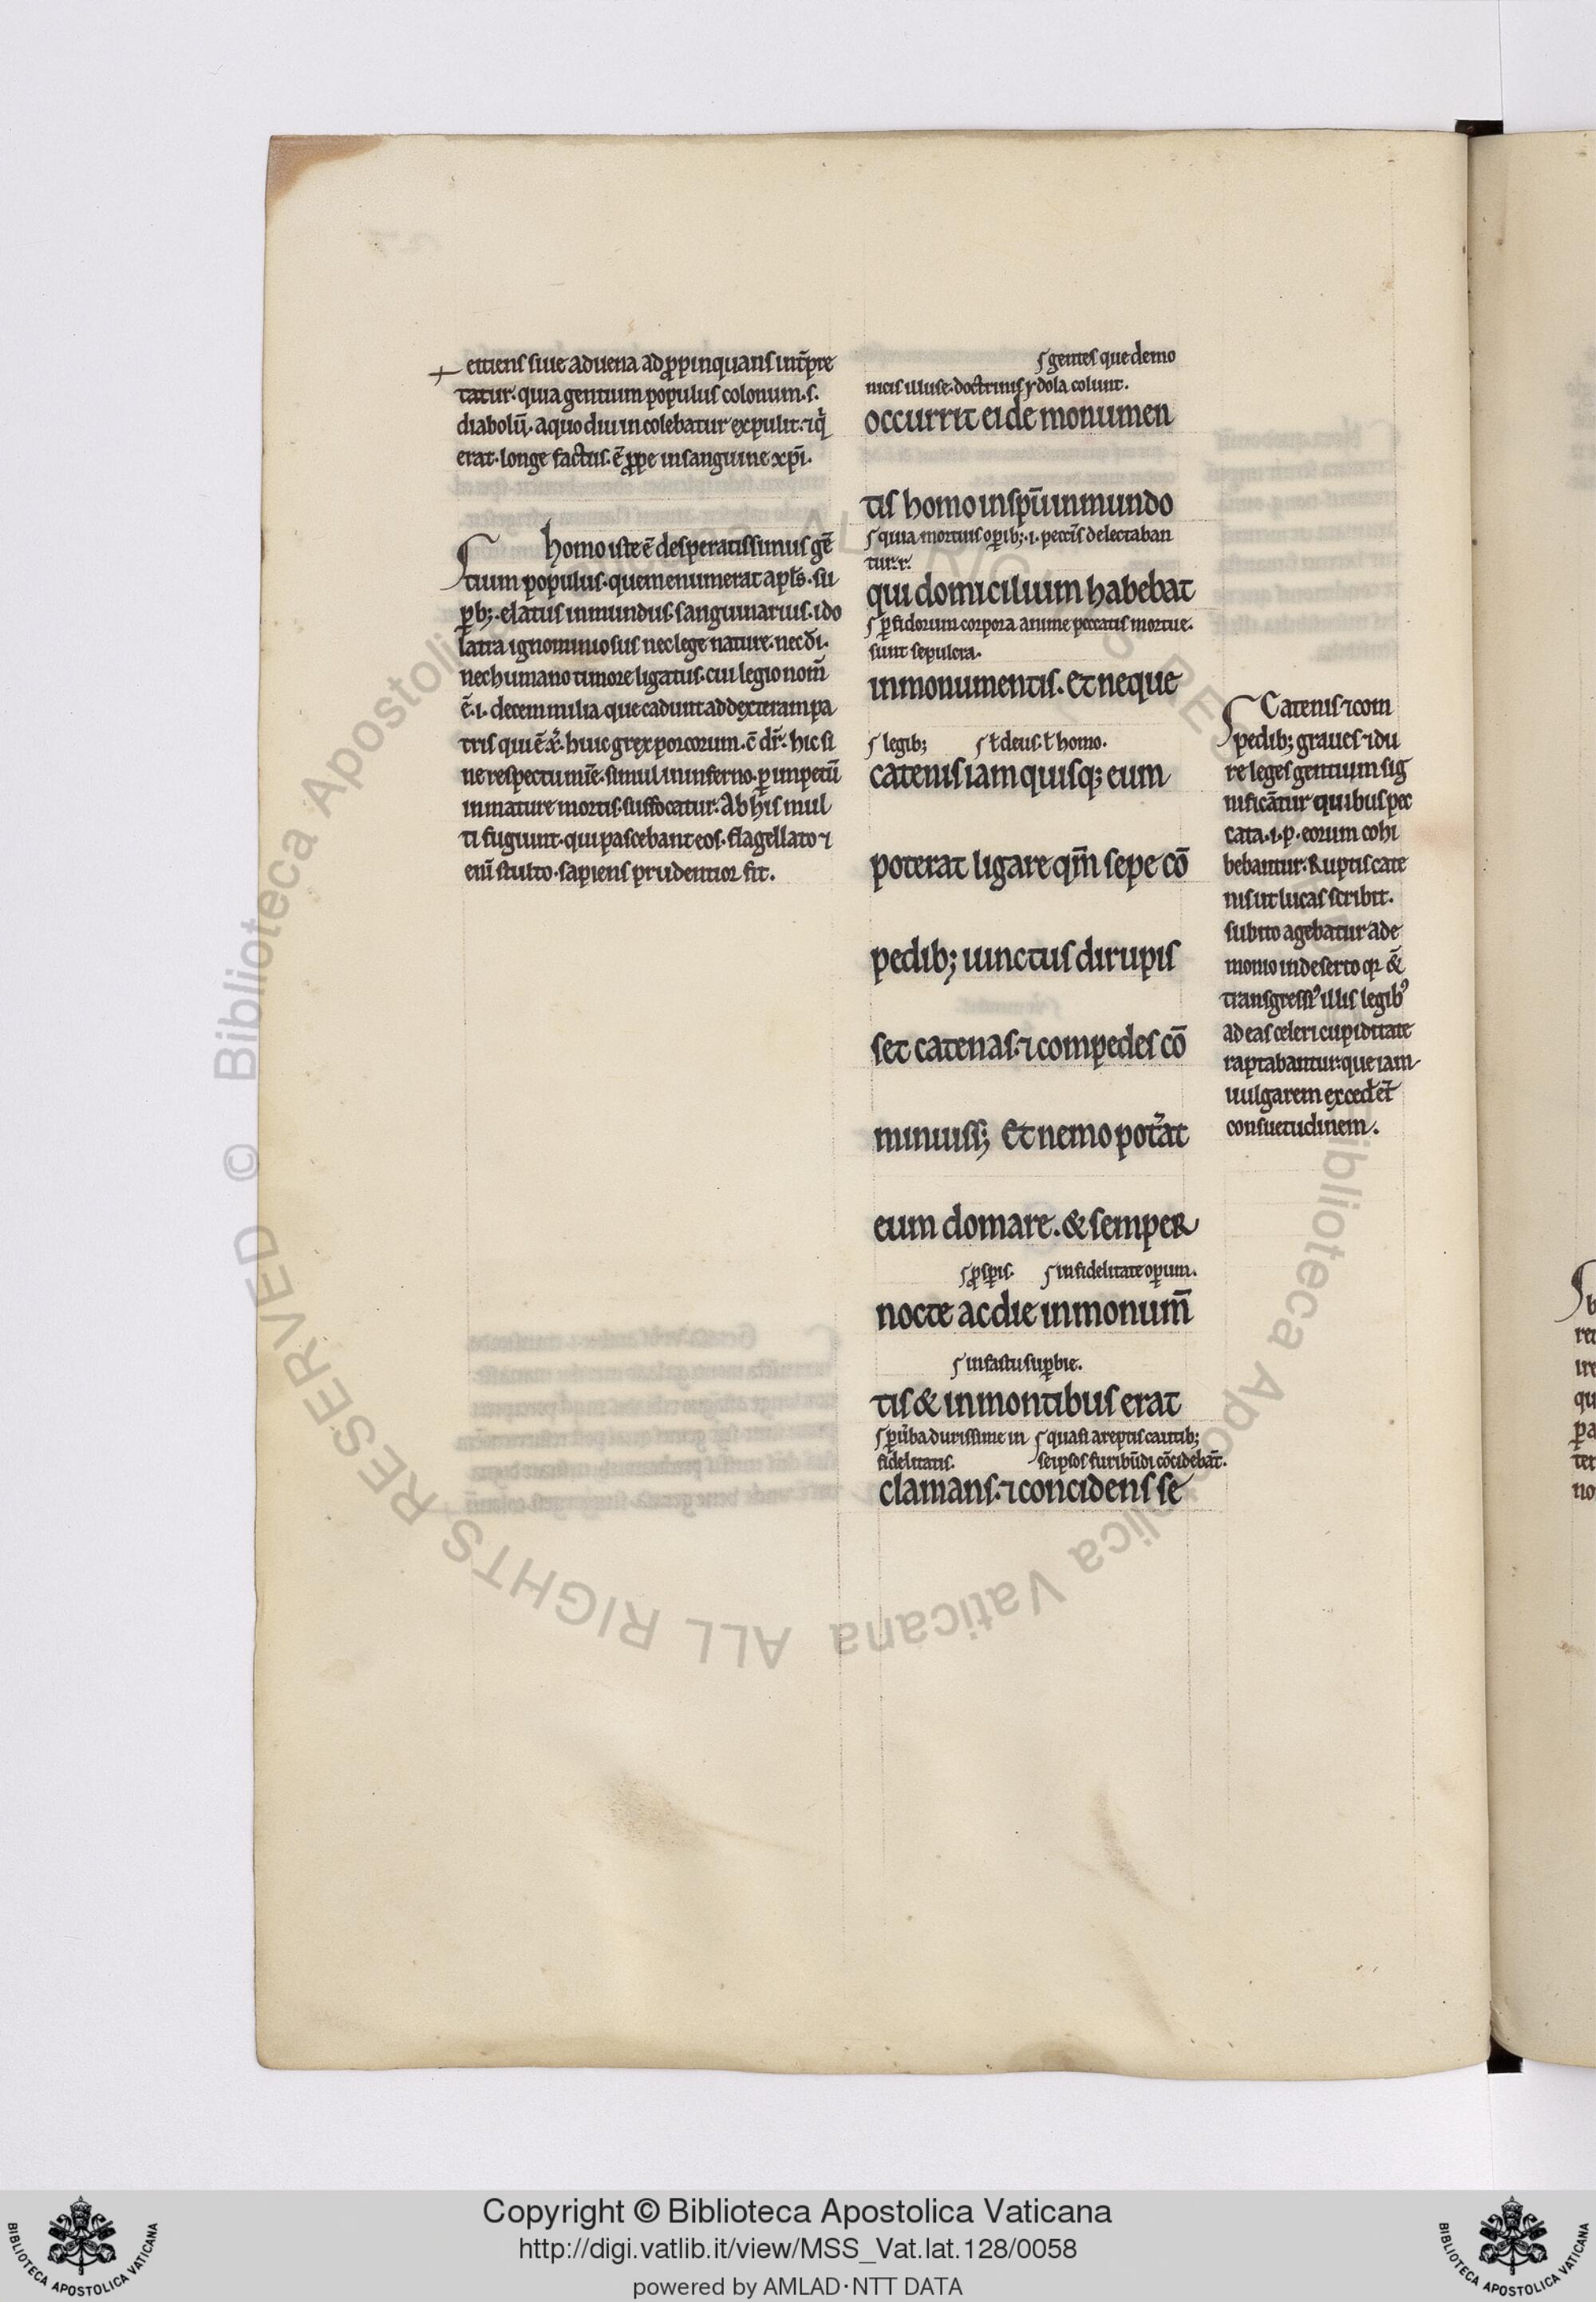 eitiens siue aduena adp̱pinquans int̄pre
tatur. quia gentium populus colonum .s.
diabolū. aquo diu incolebatur expulit. ⁊ q̇
erat longe factus. ē ꝓpe insanguine xp̄i.
homo iste ē desperatissimus gē
tium populus. quem enumerat apl̄s. su
ꝑb;. elatus inmundus. sanguinarius. ido
latra ignominiosus nec lege nature. nec dī.
nec humano timore ligatus. cui legio nom̄
ē .i. decem milia que cadunt addexteram pa
tris qui ē x̄. huic grex porcorum. c̄ dr̄. hic si
ne respectu mīe. simul in inferno. ꝑ impetū
inmature mortis. suffocatur. Ab his mul
ti fugiunt. qui pascebant eos. flagellato ⁊
enī stulto. sapiens prudentior fit.
gentes que demo
nicis illuse. doctrinis ydola colunt.
occurrit ei de monumen
tis homo inspū inmundo
quia mortuis oꝑib; .i. peccīs delectaban
tur. r.
qui domicilium habebat
ꝑfidorum corpora anime peccatis mortue.
sunt sepulcra.
inmonumentis. Et neque
legib; ł deus. ł homo.
catenis iam quisq; eum
poterat ligare qm̄ sepe cō
pedib; uinctus dirupis
set catenas. ⁊ compedes cō
minuiss; Et nemo pot̄at
eum domare. & semper
ꝓspis. infidelitate oꝑum.
nocte ac die inmonum̄
infastu suꝑbie.
tis & inmontibus erat
ꝑ ūba durissime in quasi areptis cautib;
fidelitatis. seipsos furibūdi cōcidebāt.
clamans. ⁊ concidens se
Catenis ⁊ com
pedib; graues ⁊ du
re leges gentium sig
nificāntur quibus pec
cata .i. p. eorum cohi
bebantur. Ruptis cate
nis ut lucas scribit.
subito agebatur a de
monio indeserto qꝛ &̄
transgressꝰ illis legibꝰ
ad eas celeri cupiditate
raptabantur: que iam
uulgarem exced̄et
consuetudinem.
Copyright © Biblioteca Apostolica Vaticana
http://digi.vatlib.it/view/MSS_Vat.lat.128/0058
powered by AMLAD·NTT DATA
BIBLIOTECA APOSTOLICA VATICANA
BIBLIOTECA APOSTOLICA VATICANA
© Biblioteca Apostolica Vaticana ALL RIGHTS RESERVED